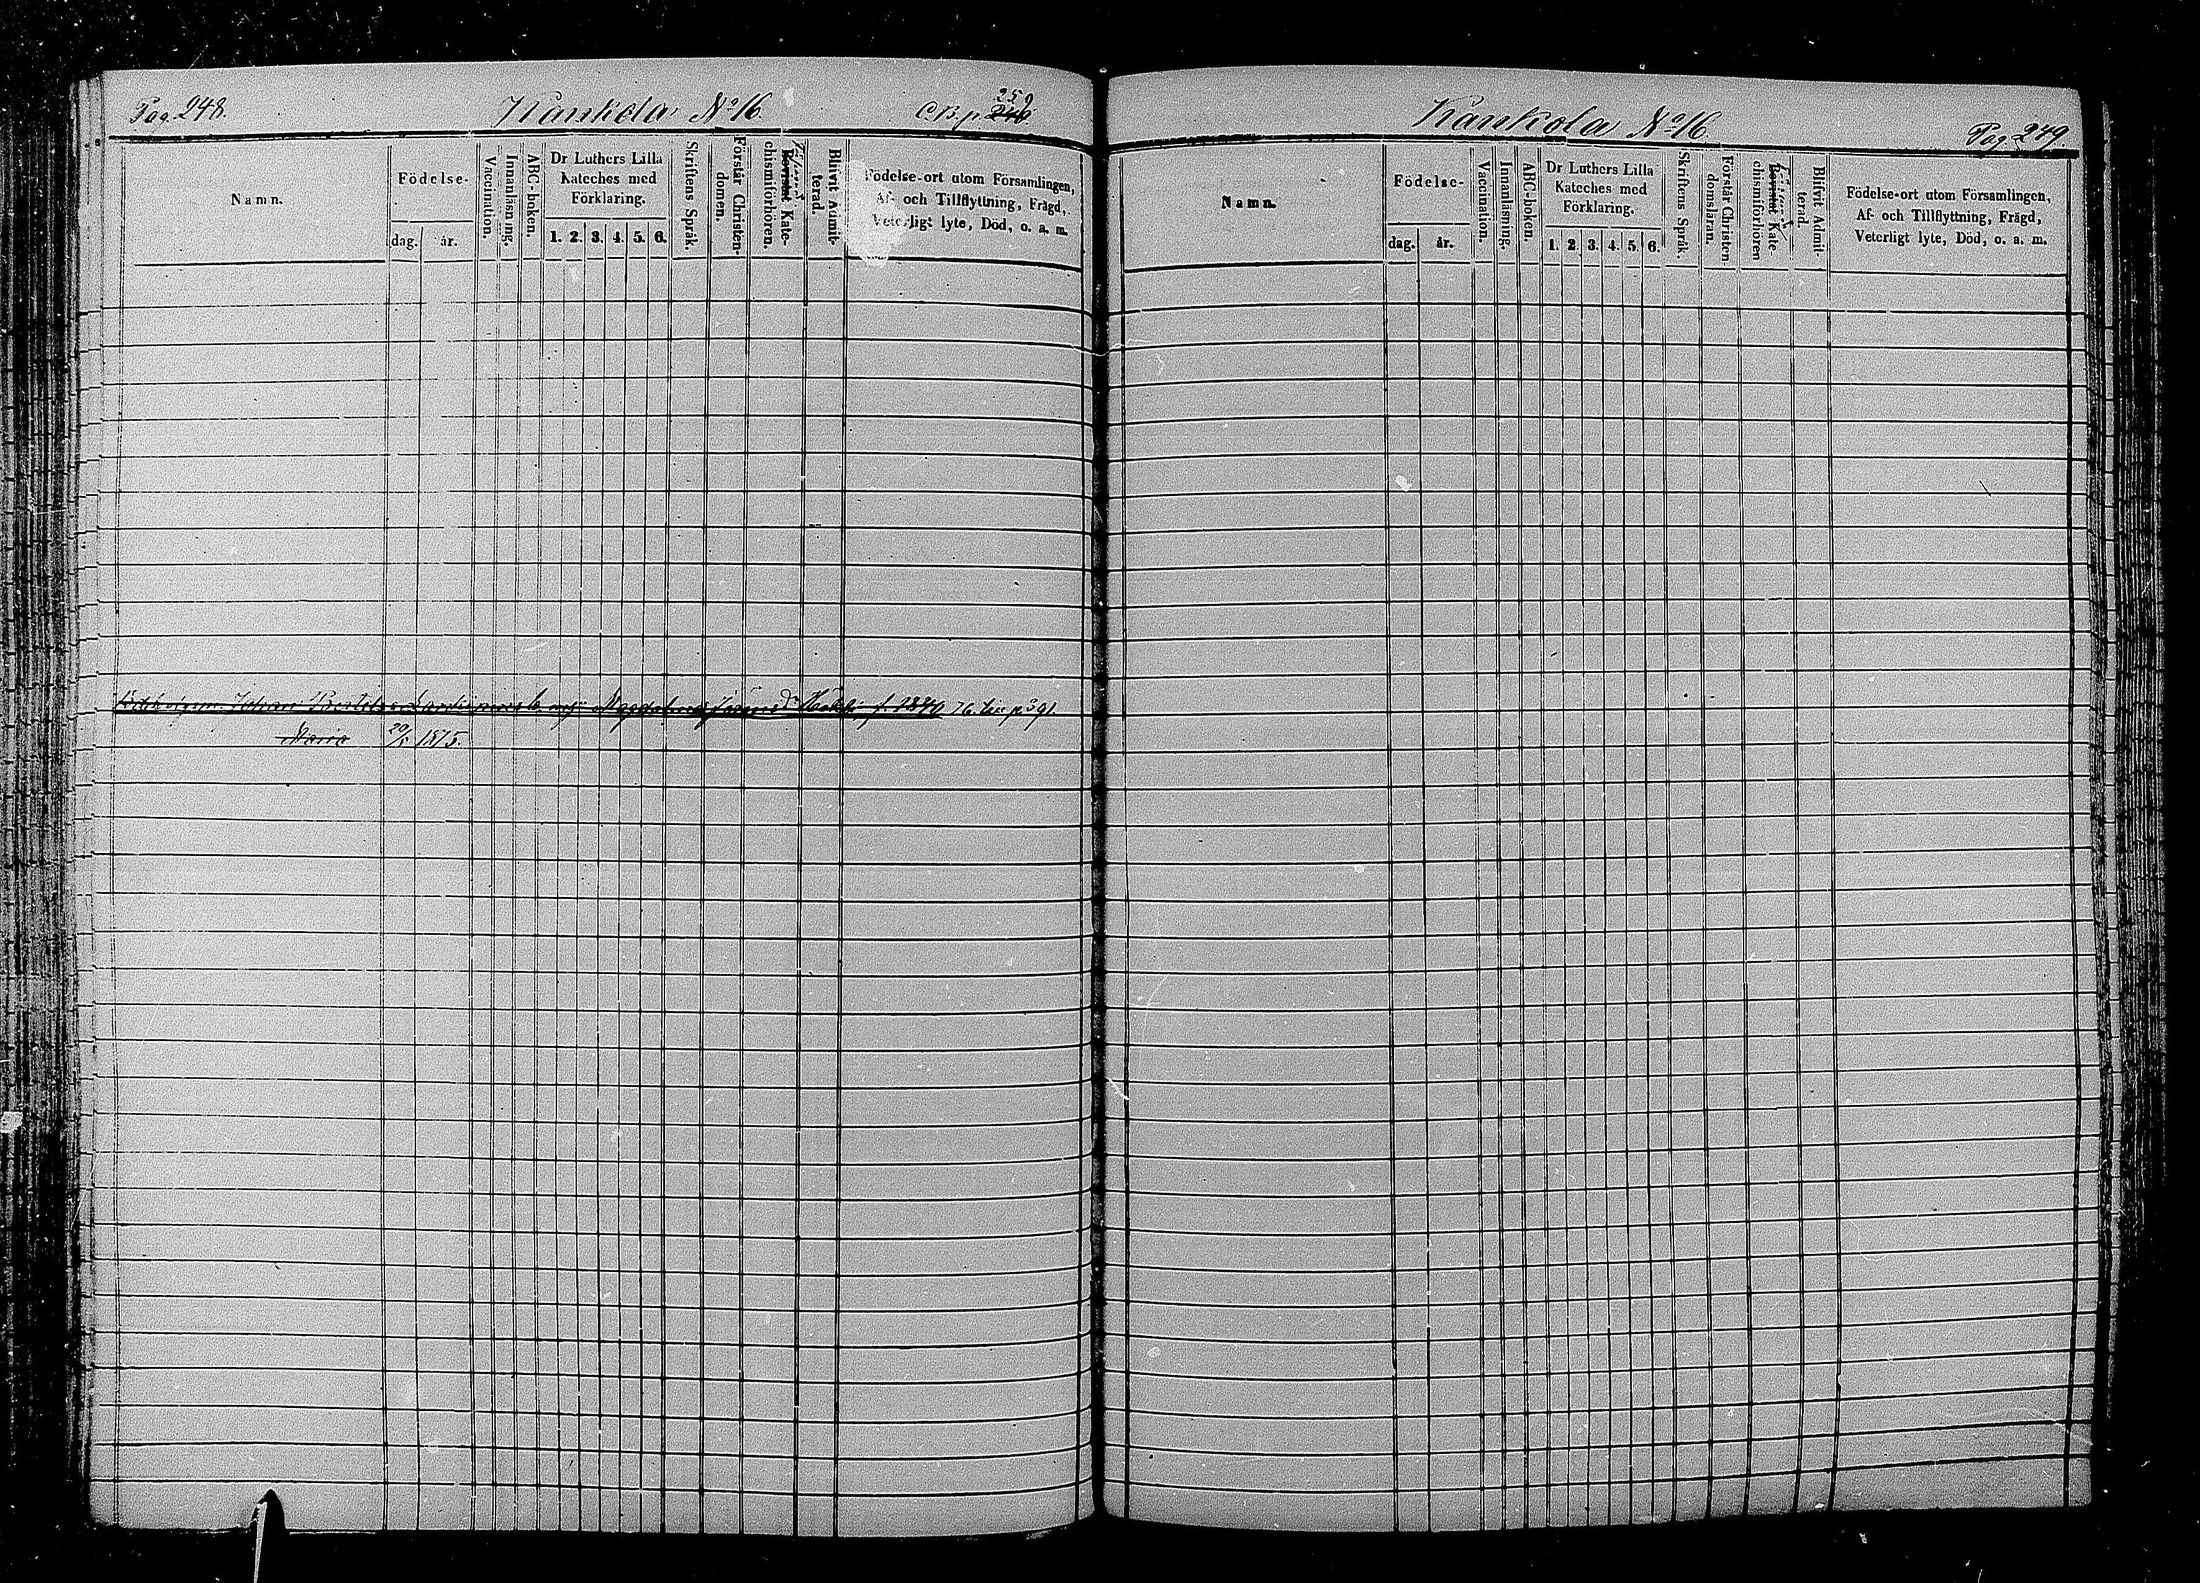 Pag. 248.
Kankola No 16.
C.B. p. 246. 259
Namn.
Födelse-
dag. år.
Vaccination.
Innanläsning.
ABC-boken.
Dr Luthers Lilla
Kateches med
Förklaring.
1. 2. 3. 4. 5. 6.
Skriftens Språk.
Förstår Christen-
domen.
Bevistat Kate-
chismiförhören.
Blivit Admit-
terad.
Födelse-ort utom Församlingen,
Af- och Tillflyttning, Frägd,
Veterligt lyte, Död, o. a. m.
Johan Magdalena f. 1840 76. p 391.
Maria 20/5 1815.
Kankola No 16.
Pag. 249.
Namn.
Födelse-
dag. år.
Vaccination.
Innanläsning.
ABC-boken.
Dr Luthers Lilla
Kateches med
Förklaring.
1. 2. 3. 4. 5. 6.
Skriftens Språk.
Förstår Christen-
domsläran.
Bevistat Kate-
chismiförhören
Blifvit Admit-
terad.
Födelse-ort utom Församlingen,
Af- och Tillflyttning, Frägd,
Veterligt lyte, Död, o. a. m.